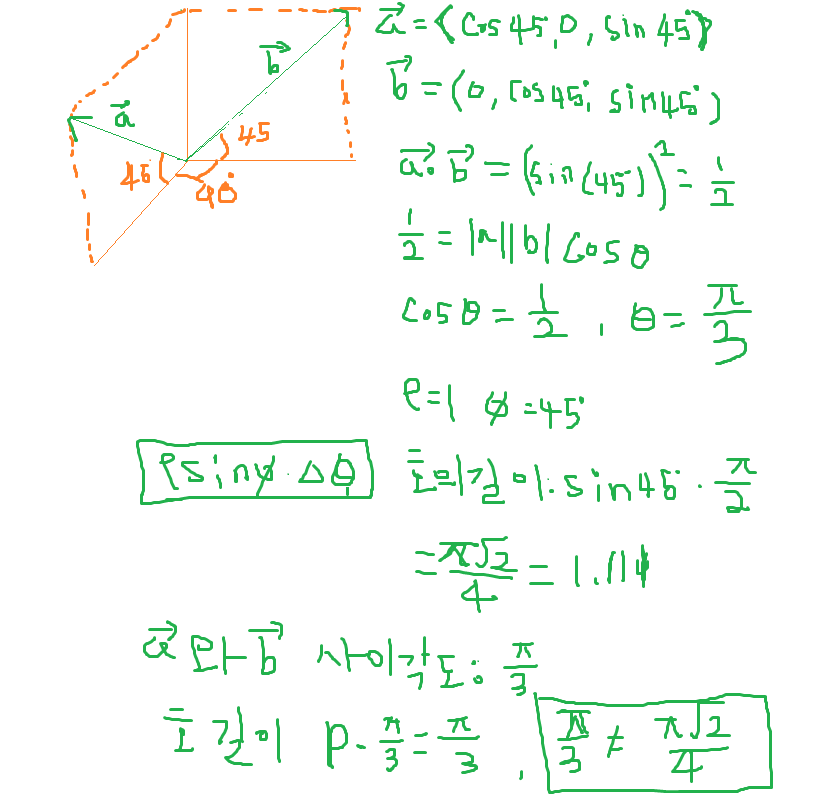 a⃗ = (cos45°, 0, sin45°)
b⃗ = (0, cos45°, sin45°)
b⃗
a⃗
45
45
90°
a⃗·b⃗ = (sin(45°))² = 1/2
1/2 = |a||b|cosθ
cosθ = 1/2, θ = π/3
ρ=1 ϕ=45°
ρsinϕ·Δθ
호의길이 1·sin45°·π/2
= π√2/4 = 1.11
a⃗와 b⃗ 사이각도: π/3
호길이 ρ·π/3 = π/3, π/3 ≠ π√2/4